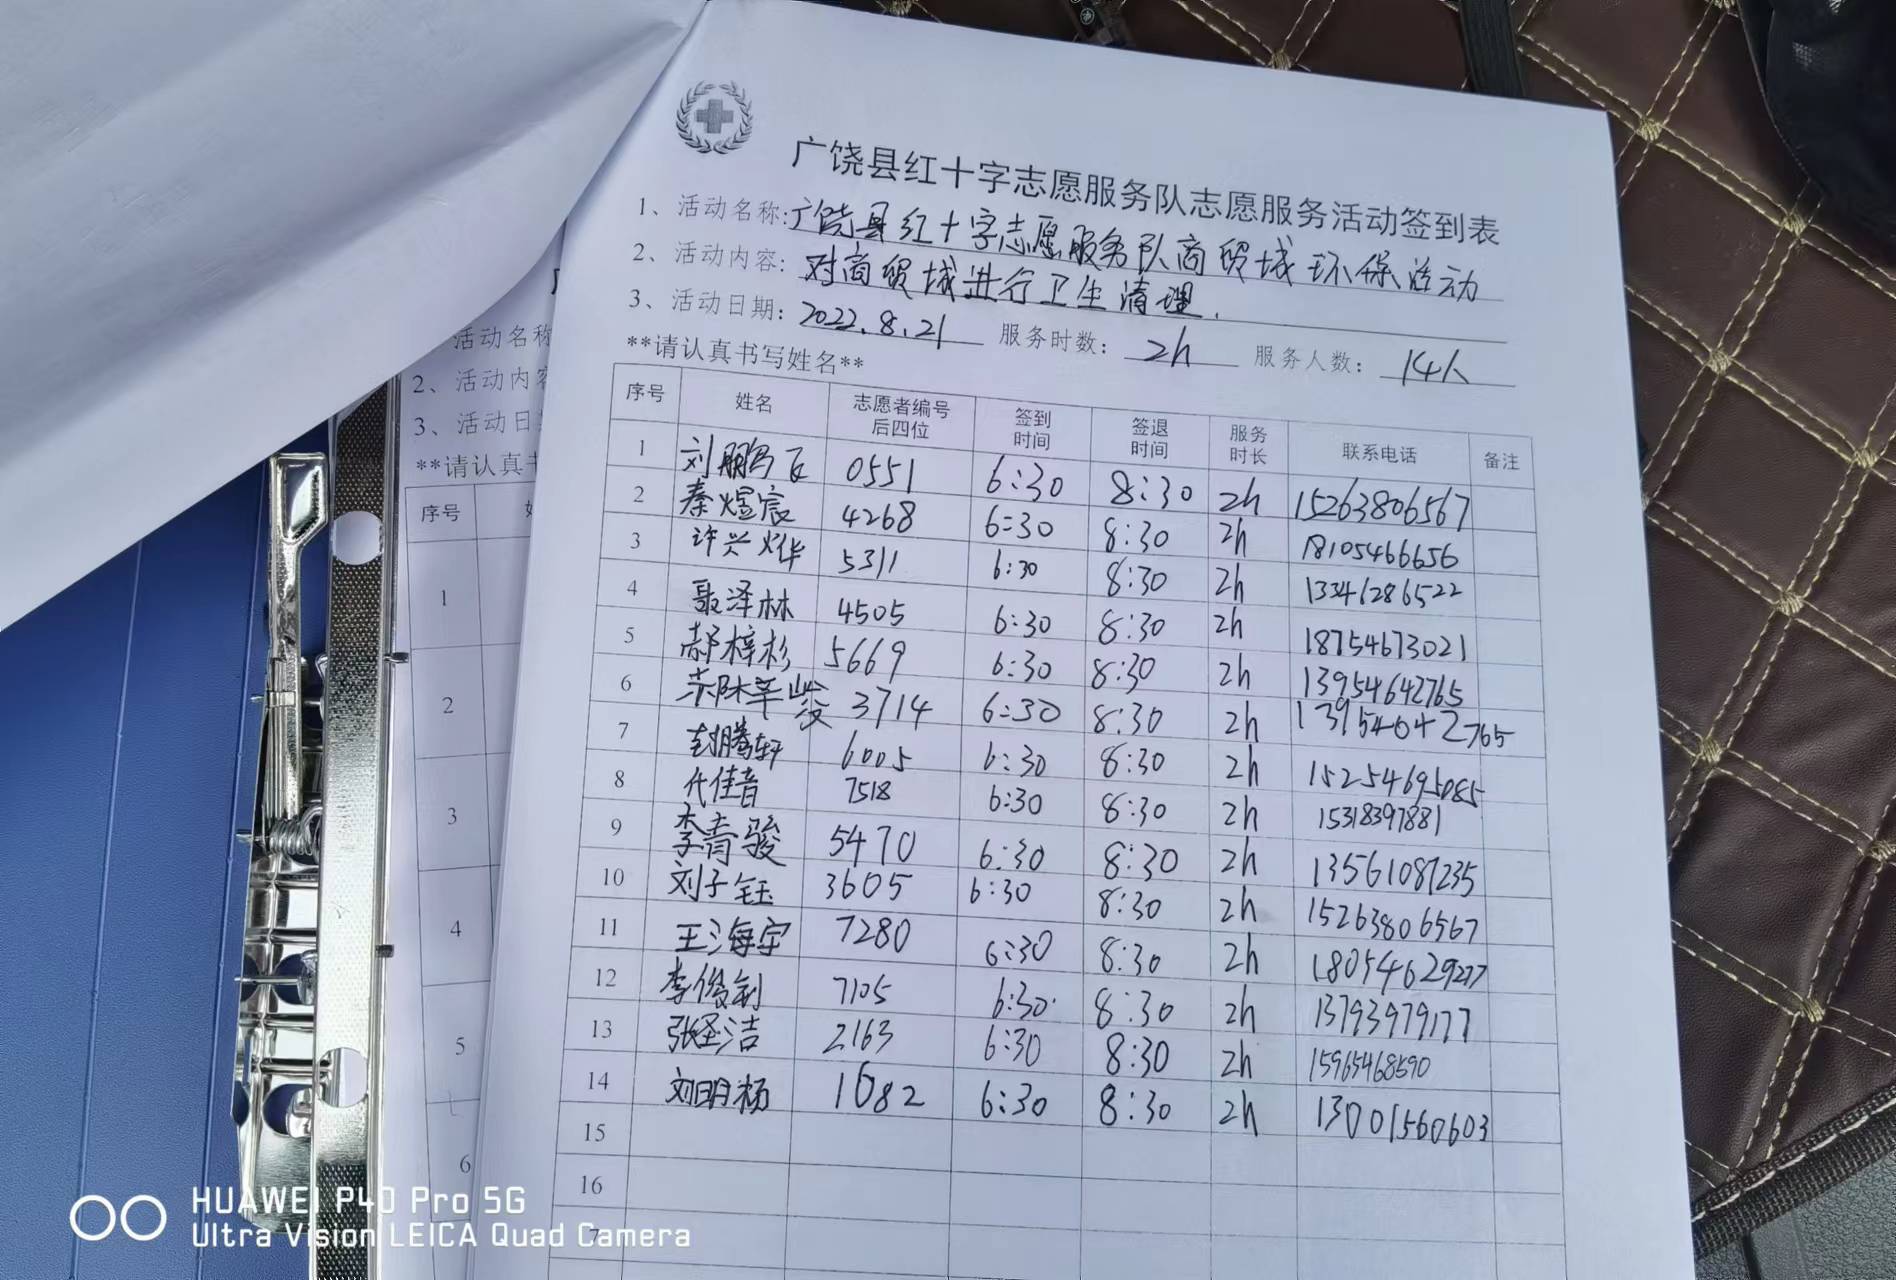 广饶县红十字志愿服务队志愿服务活动签到表
1、活动名称:广饶县红十字志愿服务队商贸城环保活动
2、活动内容:对商贸城进行卫生清理.
3、活动日期:2022.8.21 服务时数:2h 服务人数:14人
**请认真书写姓名**
序号 姓名 志愿者编号后四位 签到时间 签退时间 服务时长 联系电话 备注
1 刘鹏飞 0551 6:30 8:30 2h 15263806567
2 秦煜宸 4268 6:30 8:30 2h 18105466656
3 许兴烨 5311 6:30 8:30 2h 13346286522
4 聂泽林 4505 6:30 8:30 2h 18754673021
5 郝梓杉 5669 6:30 8:30 2h 13954642765
6 3714 6:30 8:30 2h 13954642765
7 腾轩 6005 6:30 8:30 2h 15254695085
8 代佳音 7518 6:30 8:30 2h 15318397881
9 李青骏 5470 6:30 8:30 2h 13561081235
10 刘子钰 3605 6:30 8:30 2h 15263806567
11 王海宇 7280 6:30 8:30 2h
12 李俊剑 7105 6:30 8:30 2h 13793979177
13 张圣洁 2163 6:30 8:30 2h 15965468590
14 刘明杨 1682 6:30 8:30 2h 13001560603
15
16
活动名称
2、活动内容
3、活动日
**请认真书
序号
1
2
3
4
5
6
HUAWEI P40 Pro 5G
Ultra Vision LEICA Quad Camera